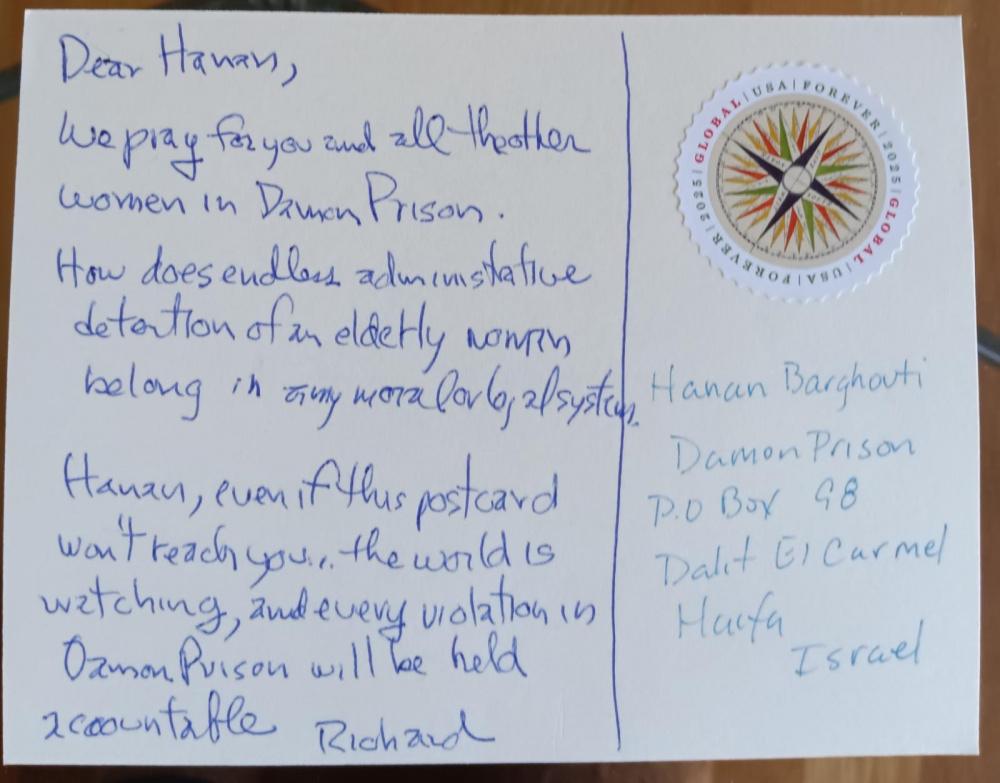 Dear Hanan,
We pray for you and all the other
women in Damon Prison.
How does endless administative
detention of an elderly woman
belong in any moral or legal system.
Hanan, even if this postcard
won't reach you... the world is
watching, and every violation in
Damon Prison will be held
accountable
Richard
GLOBAL | USA | FOREVER | 2025 | GLOBAL | USA | FOREVER | 2025 |
Hanan Barghouti
Damon Prison
P.O Box 98
Dalit El Carmel
Haifa
Israel